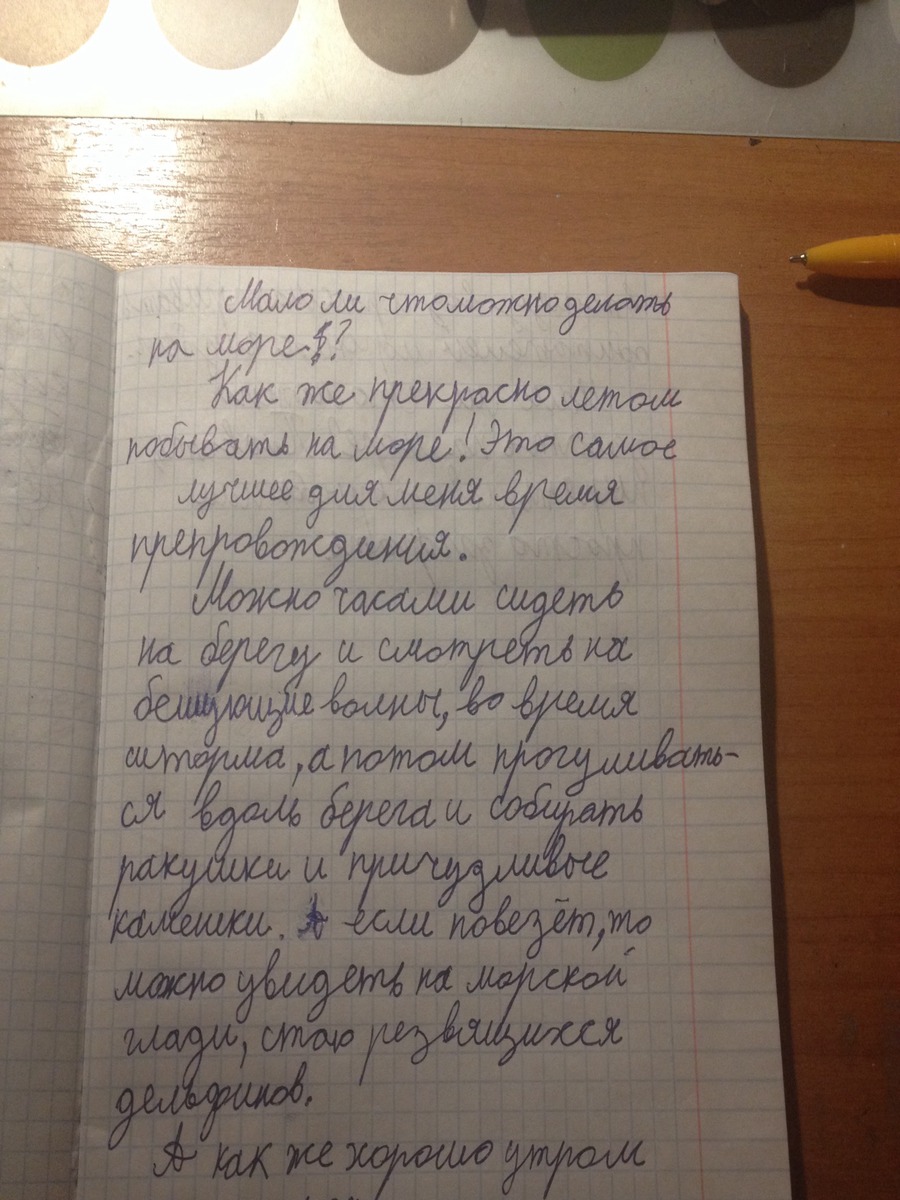 Мало ли что можно делать
на море!?
Как же прекрасно летом
побывать на море! Это самое
лучшее для меня время
препровождения.
Можно часами сидеть
на берегу и смотреть на
бешующие волны, во время
шторма, а потом прогуливать-
ся вдоль берега и собирать
ракушки и причудливые
камешки. А если повезёт, то
можно увидеть на морской
глади, стаю резвящихся
дельфинов.
А как же хорошо утром